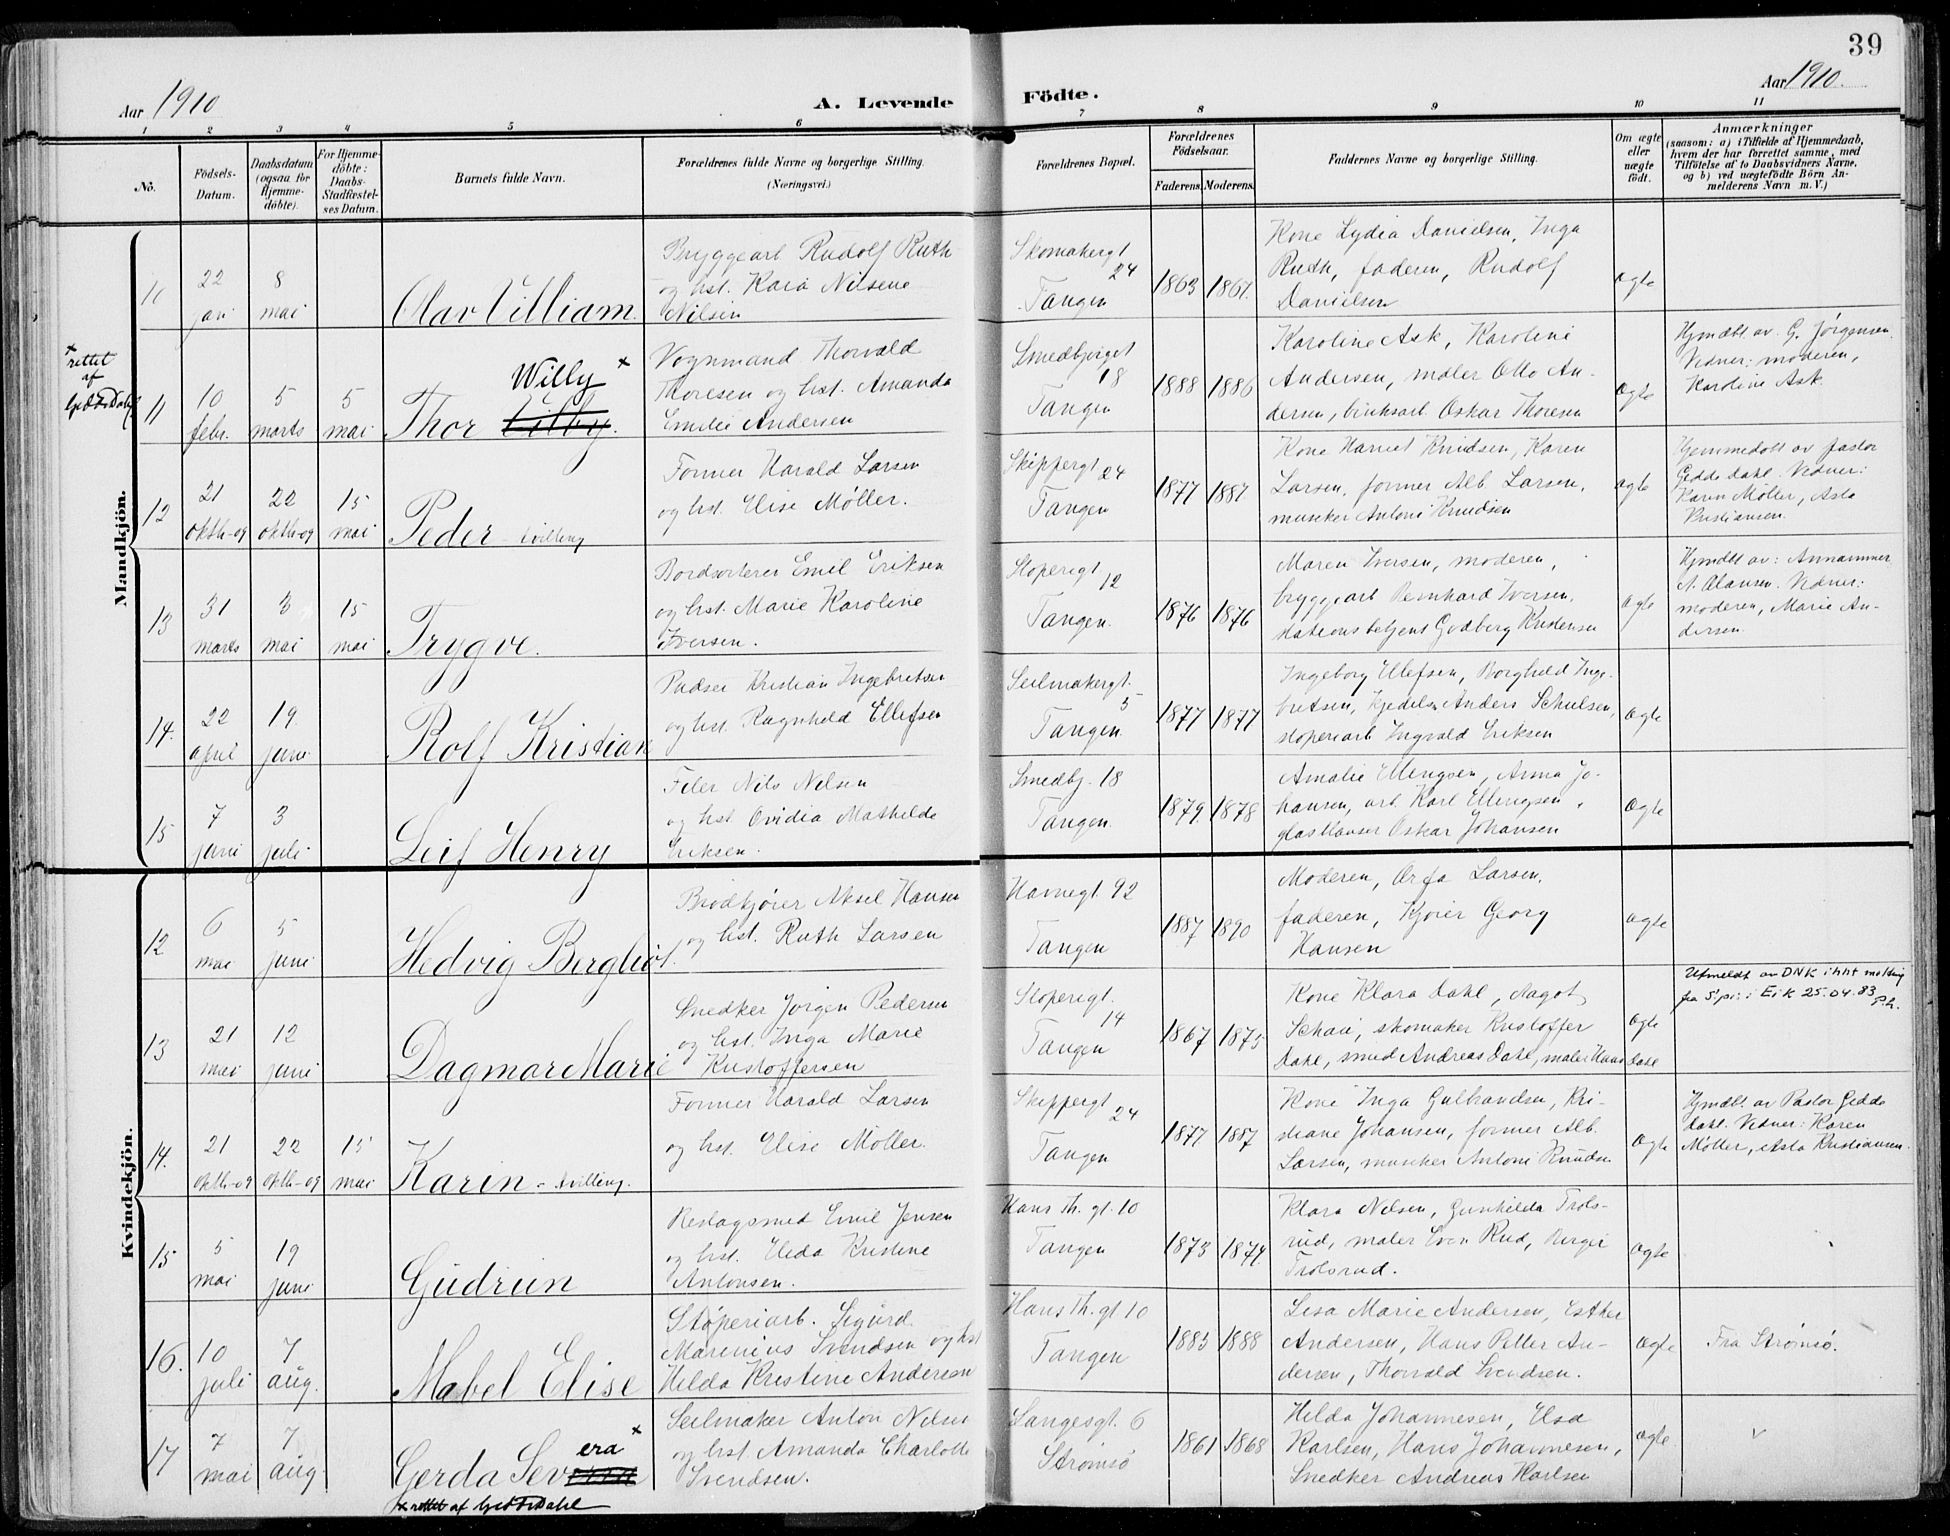 39
Aar 1910
A. Levende
Födte.
Aar 1910.
1 2 3 4 5 6 7 8 9 10 11
No.
Födsels-
Datum.
Daabsdatum
(ogsaa for
Hjemme-
döbte).
For Hjemme-
döbte:
Daabs-
Stadfæstel-
ses Datum.
Barnets fulde Navn.
Forældrenes fulde Navne og borgerlige Stilling.
(Næringsvei.)
Forældrenes Bopæl.
Forældrenes
Födselsaar.
Faderens. Moderens.
Faddernes Navne og borgerlige Stilling.
Om ægte
eller
uægte
födt.
Anmærkninger
(saasom: a) i Tilfælde af Hjemmedaab,
hvem der har forrettet samme, med
Tilföielse af to Daabsvidners Navne,
og b) ved uægtefödte Börn An-
melderens Navn m. V.)
Mandkjön.
10
22
jan
8
mai
Olav Villiam.
Bryggearb Rudolf Ruth
og hst.
Nilsen
Skomakergt
24
Tangen
1863
Kone Lydia Danielsen, Inga
Ruth, faderen, Rudolf
Danielsen
ægte
x
rettet
af
Gedde Dahl
11
10
febr.
5
marts
5
mai
Willy x
Thor
Vognmand Thorvald
Thoresen og hst. Amanda
Emilie Andersen
Smedbjerget
18
Tangen
1888
1886
Karoline Ask, Karoline
Andersen, maler Otto An-
dersen, Oskar Thoresen
ægte
Hjmdbt. av G. Jørgensen.
Vidner: moderen,
Karoline Ask.
12
21
oktb-09
22
oktb-09
15
mai
Peder - tvilling
Former Harald Larsen
og hst. Elise Møller.
Skippergt
24
Tangen
1877
1887
Kone Harriet Knudsen, Karen
Larsen, former Alb Larsen,
musiker Antoni Knudsen
ægte
Hjemmedøbt av pastor
Gedde Dahl. Vidner:
Karen Møller, Asta
Kristiansen.
13
31
marts
3
mai
15
mai
Trygve.
Bordsorterer Emil Eriksen
og hst. Marie Karoline
Iversen.
Støperigt
12
Tangen.
1876
1876
Maren Iversen, moderen,
bryggearb Bernhard Iversen,
stationsbetjent Godberg Kristensen
ægte
Hjmdbt av:
N. Olausen. Vidner:
moderen, Marie An-
dersen.
14.
22
april
19.
juni
Rolf Kristian
Pudser Kristian Ingebretsen
og hst. Ragnhild Ellefsen
Seilmakergt.
5
Tangen.
1877
1877
Ingeborg Ellefsen, Borghild Inge-
bretsen, Anders Schulsen,
støperiarb Ingvald Eriksen
ægte
15
7
juni
3
juli
Leif Henry
Filer Nils Nilsen
og hst Ovidia Mathilde
Eriksen.
Smedbj. 18
Tangen.
1879
1878
Amalie Ellingsen, Anna Jo-
hansen, arb. Karl Ellingsen,
Oskar Johansen
ægte
Kvindekjön.
12
6
mai
5
juni
Hedvig Bergliot.
Brødkjører Aksel Hansen
og hst. Ruth Larsen
Havnegt. 92
Tangen
1887
1890
Moderen, Larsen,
faderen, Kjører Georg
Hansen
ægte
13
21
mai
12
juni
Dagmar Marie
Snedker Jørgen Pedersen
og hst. Inga Marie
Kristoffersen
Støperigt.
14
Tangen
1867
1875
Kone Klara Dahl, Aagot
skomaker Kristoffer
Dahl, smed Andreas Dahl, maler Hans Dahl
ægte
Utmeldt av DNK iht melding
fra S.pr. i Eik 25.04.83
14.
21
oktb-09
22
oktb-09
15
mai
Karin - tvilling.
Former Harald Larsen
og hst. Elise Møller.
Skippergt
24
Tangen
1877
1887
Kone Inga Gulbrandsen, Kri-
stiane Johansen, former Alb.
Larsen, musiker Antoni Knudsen
ægte
Hjmdbt. av Pastor Gedde
Dahl. Vidner: Karen
Møller, Asta Kristiansen.
15
5
mai
19
juni
Gudrun
Reslagsmed Emil Jensen
og hst. Kristine
Antonsen.
Hans Th. gt. 10
Tangen
1873
1874.
Klara Nilsen, Gunhilda Trols-
rud, maler Even Rud, Birger
Trolsrud.
ægte
16.
10
juli
7
aug.
Mabel Elise
Støperiarb. Sigurd
Marinius Svendsen og hst
Hilda Kristine Andersen
Hans Th. gt 10
Tangen
1885
1888
Lisa Marie Andersen, Esther
Andersen, Hans Petter An-
dersen, Thorvald Svendsen.
ægte
Fra Strømsø.
17
7
mai
7
aug.
era x
Gerda Sev
Seilmaker Anton Nilsen
og hst Amanda Charlotte
Svendsen.
Langesgt. 6
Strømsø
1861
1868
Hilda Johannesen, Elsa
Karlsen, Hans Johannesen,
Snedker Andreas Karlsen
ægte
x rettet af Gedde Dahl